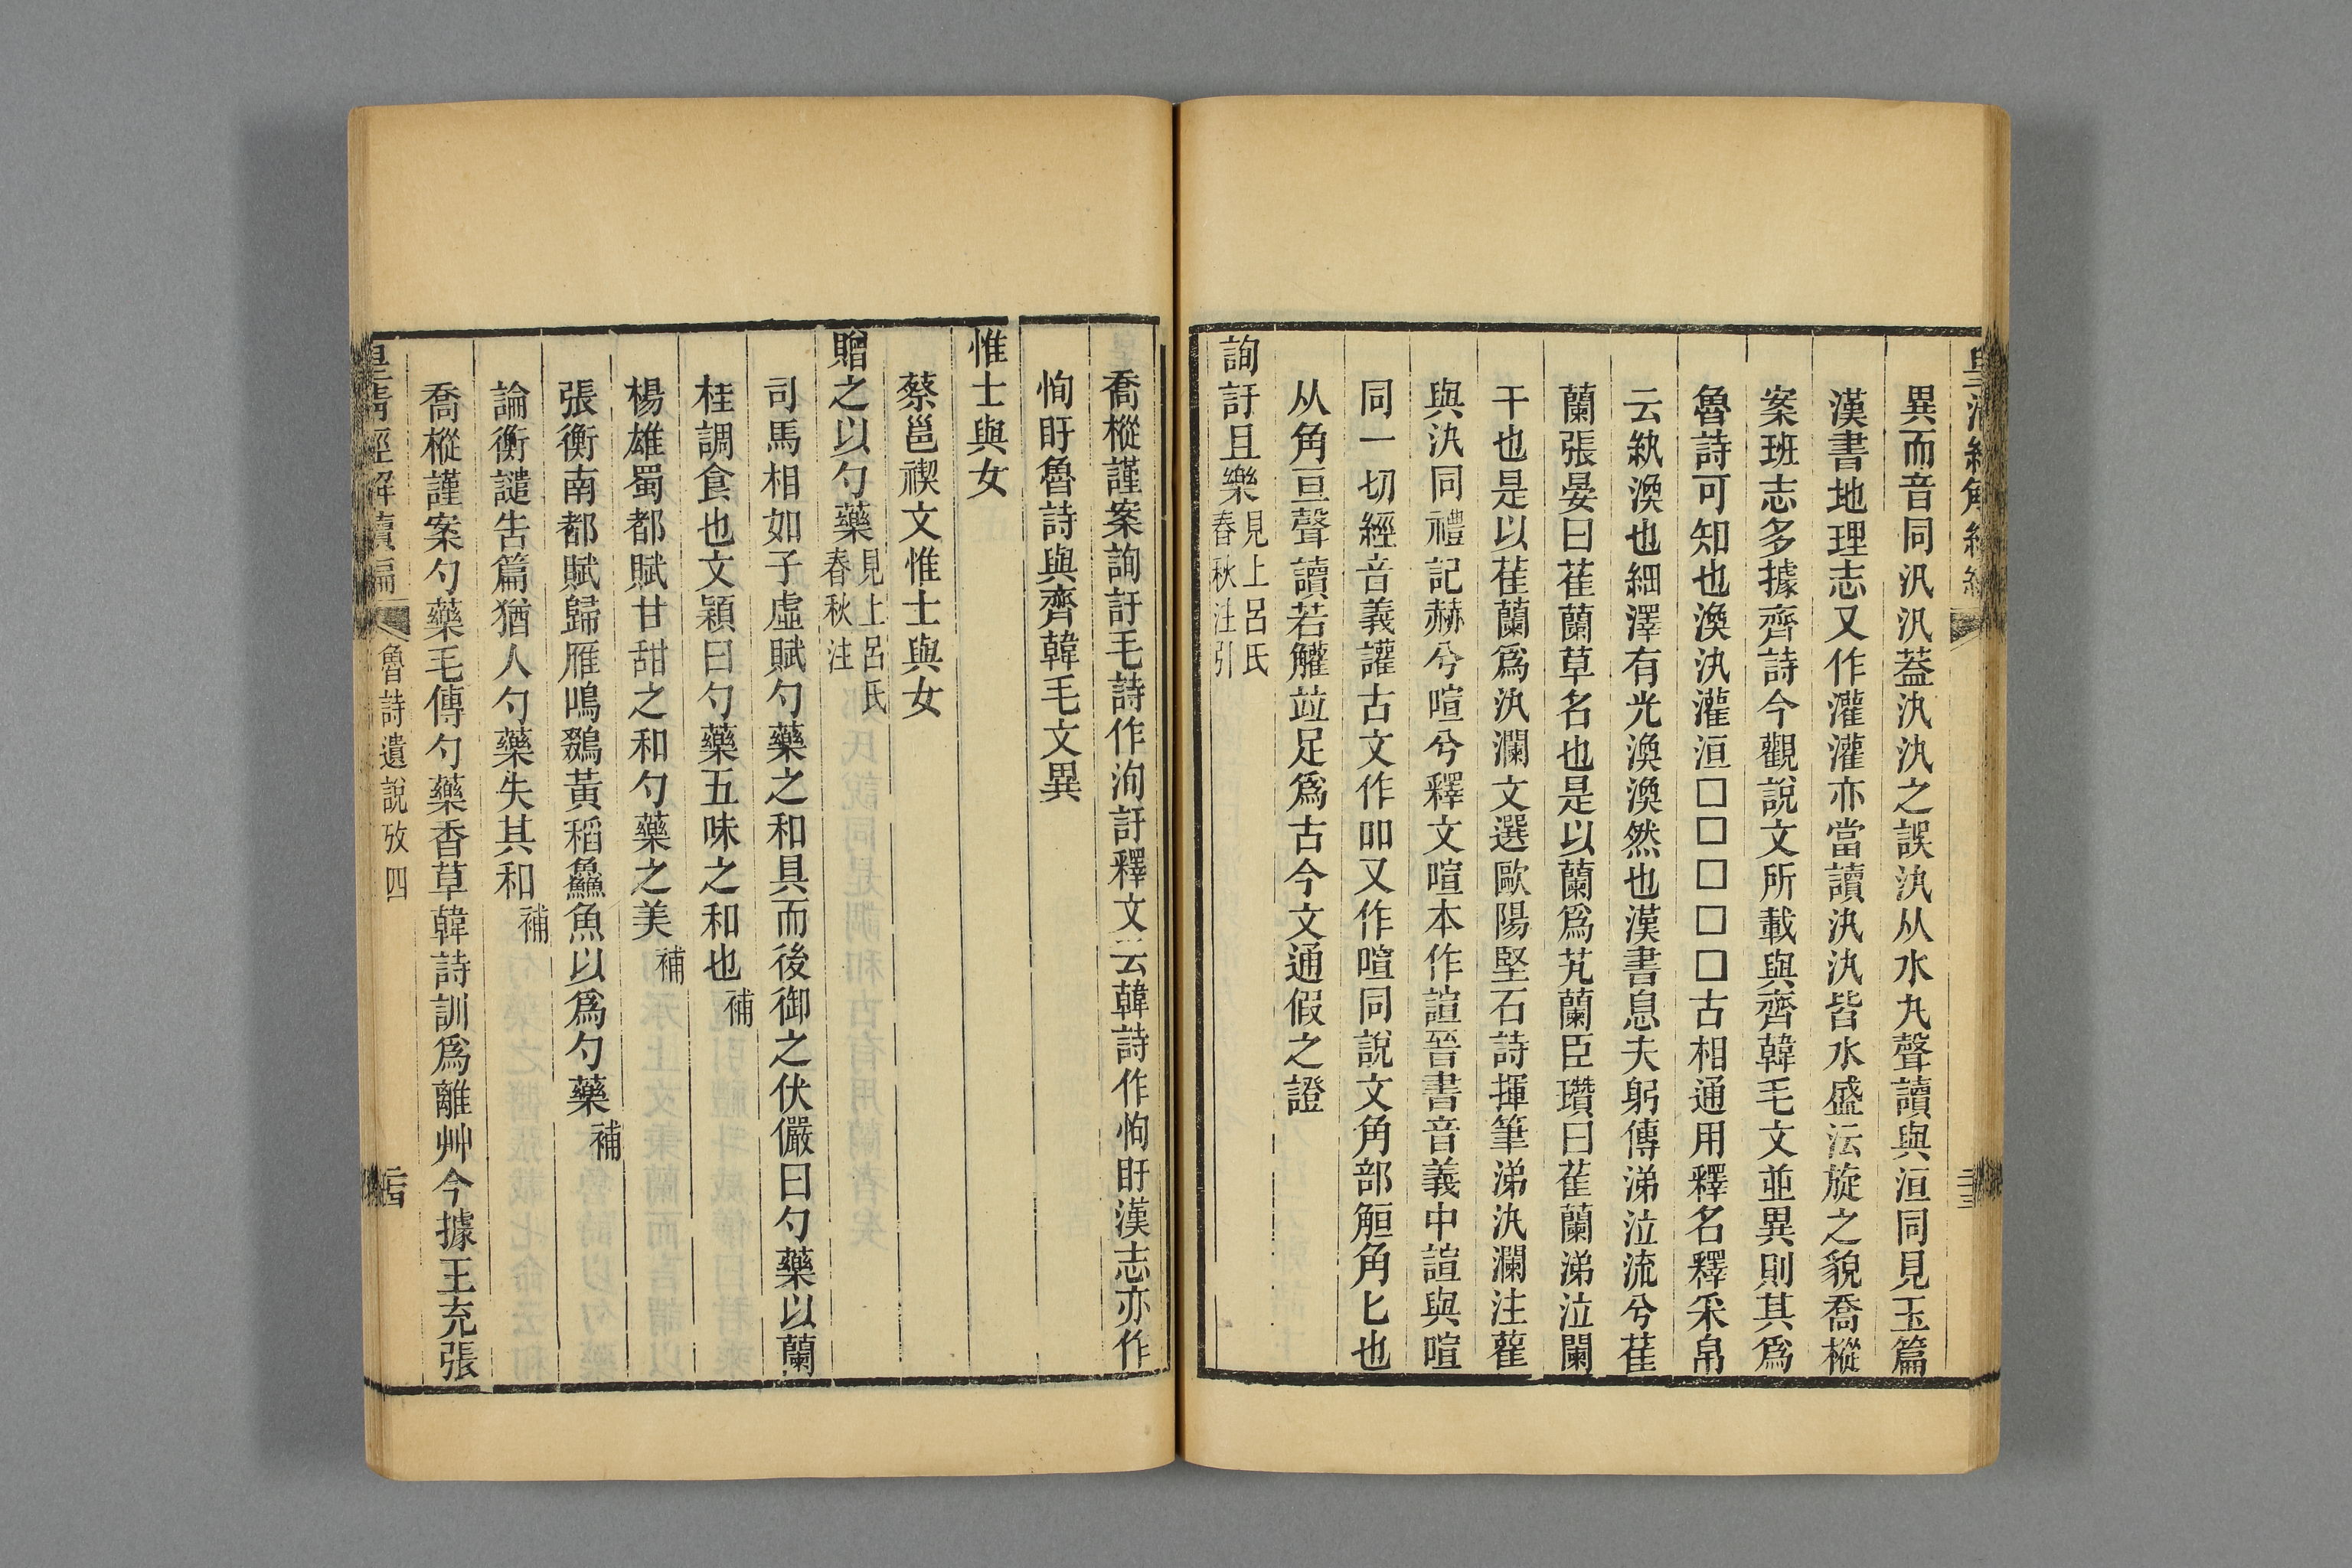 異而音同汎汎蓋汍汍之誤汍从水丸聲讀與洹同見玉篇
漢書地理志又作灌灌亦當讀汍汍皆水盛沄旋之貌喬樅
案班志多據齊詩今觀說文所載與齊韓毛文並異則其爲
魯詩可知也渙汍灌洹□□□□□古相通用釋名釋采帛
云紈渙也細澤有光渙渙然也漢書息夫躬傳涕泣流兮萑
蘭張晏曰萑蘭草名也是以蘭爲芄蘭臣瓚曰萑蘭涕泣闌
干也是以萑蘭爲汍瀾文選歐陽堅石詩揮筆涕汍瀾注雚
與汍同禮記赫兮喧兮釋文喧本作諠晉書音義中諠與喧
同一切經音義讙古文作吅又作喧同說文角部觛角匕也
从角亘聲讀若讙竝足爲古今文通假之證
詢訏且樂見上呂氏春秋注引
喬樅謹案詢訏毛詩作洵訏釋文云韓詩作恂盱漢志亦作
恂盱魯詩與齊韓毛文異
惟士與女
蔡邕禊文惟士與女
贈之以勺藥見上呂氏春秋注
司馬相如子虛賦勺藥之和具而後御之伏儼曰勺藥以蘭
桂調食也文穎曰勺藥五味之和也補
楊雄蜀都賦甘甜之和勺藥之美補
張衡南都賦歸雁鳴鵽黃稻鱻魚以爲勺藥補
論衡譴告篇猶人勺藥失其和補
喬樅謹案勺藥毛傳勺藥香草韓詩訓爲離艸今據王充張
皇清經解續編 魯詩遺說攷四